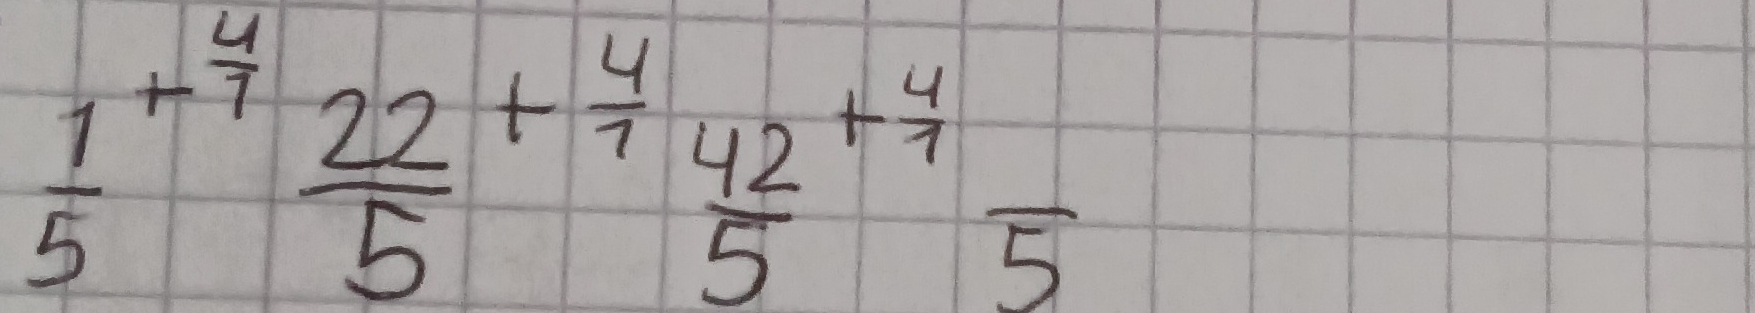 1/5 + 4/1 22/5 + 4/1 42/5 + 4/1 /5